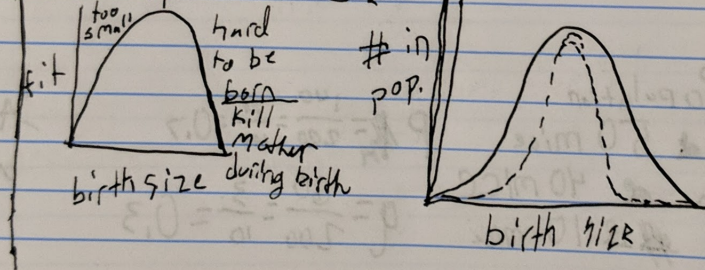 too
small
fit
hard
to be
born
kill
mother
during birth
birth size
# in
pop.
birth size